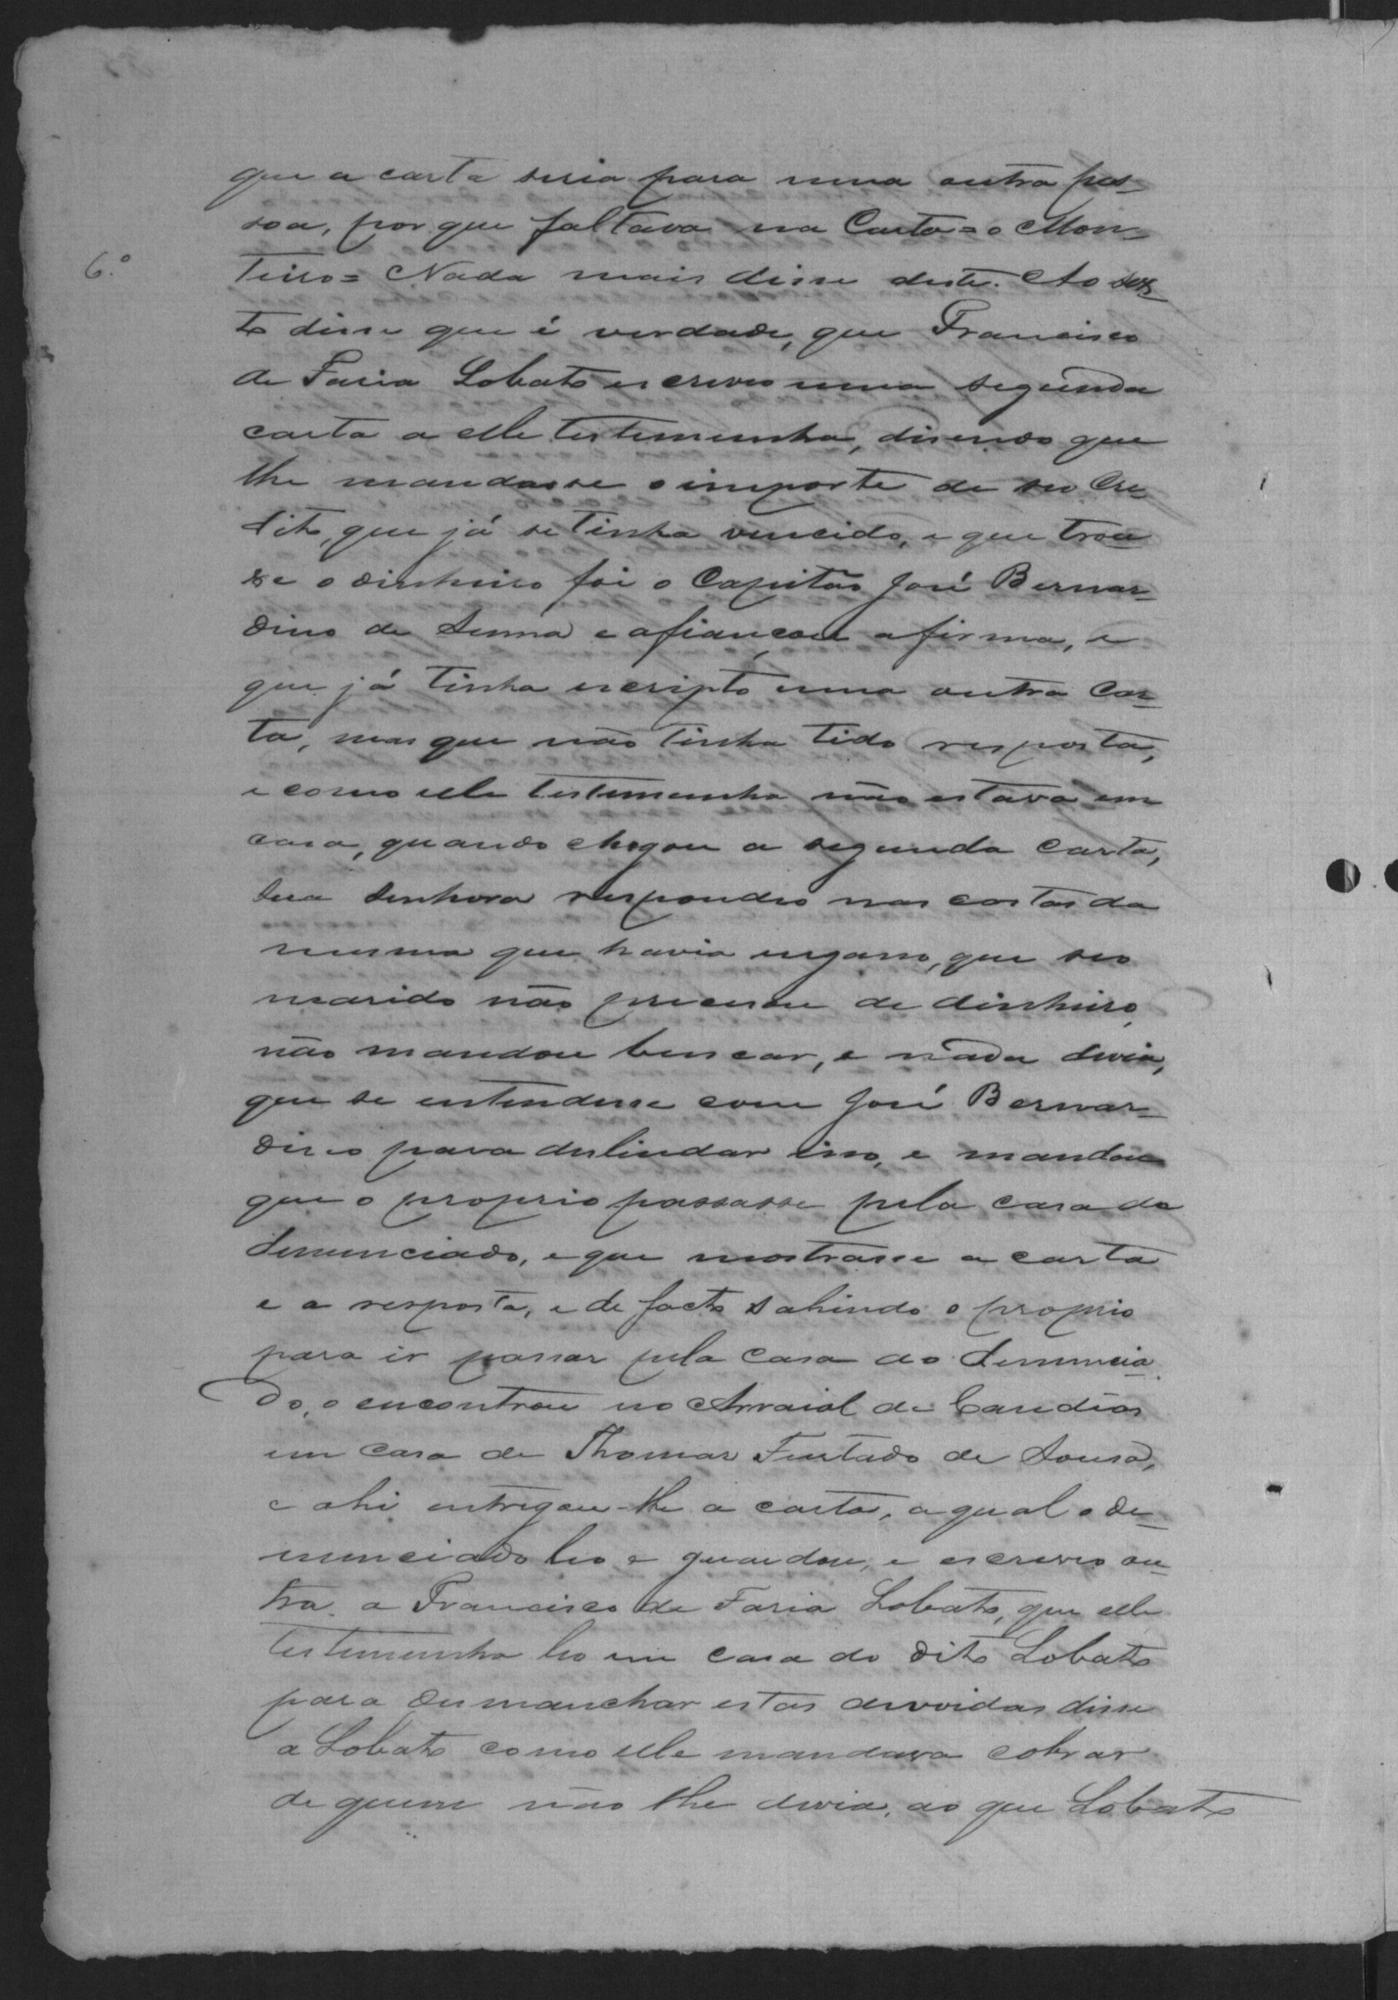 que a carta seria para uma outra pes-
soa, por que faltava na Carta = o Mon-
6.º
teiro = Nada mais disse deste. Ao sex-
to disse que é verdade, que Francisco
de Faria Lobato escreveo uma segunda
carta a elle testemunha, disendo que
lhe mandasse o importe de seu Cre
dito, que já se tinha vencido, e que trou
xe o dinheiro foi o Capitão José Bernar-
dino de Senna e afiançou a firma, e
que já tinha escripto uma outra Car-
ta, mas que não tinha tido resposta,
e como elle testemunha não estava em
casa, quando chegou a segunda carta,
sua senhora respondeo nas costas da
mesma que havia engano, que seo
marido não precisou de dinheiro,
não mandou buscar, e nada devia,
que se entendesse com José Bernar-
dino para deslindar isso, e mandou
que o proprio passasse pela casa do
denunciado, e que mostrasse a carta
e a resposta, e de facto sahindo o proprio
para ir passar pela casa do denuncia
do, o encontrou no Arraial de Candeas
em casa de Thomas Furtado de Sousa,
e ahi entregou-lhe a carta, a qual o de-
nunciado leo e guardou, e escreveo ou-
tra a Francisco de Faria Lobato, que elle
testemunha leo em casa do dito Lobato
para desmanchar estas duvidas disse
a Lobato como elle mandava cobrar
de quem não lhe devia, ao que Lobato